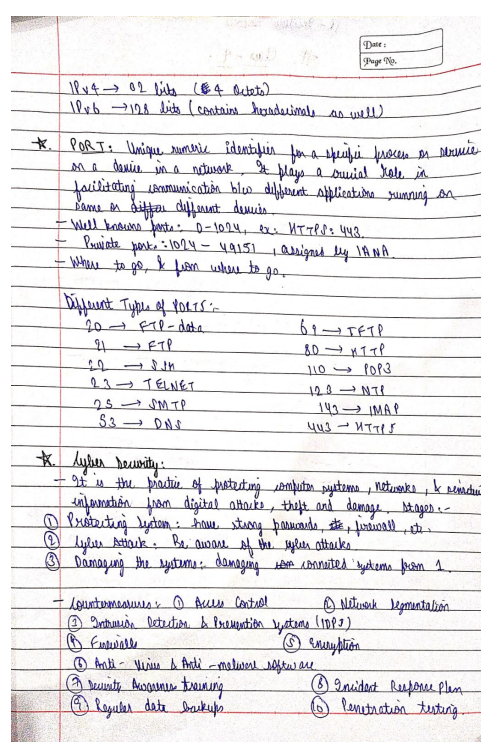 Date :
Page No.
IPv4 → 02 bits (4 Octets)
IPv6 → 128 bits (contains hexadecimals as well)
PORT: Unique numeric identifier for a specific process or service
on a device in a network. It plays a crucial role in
facilitating communication b/w different applications running on
same or different devices.
- Well knowns ports: 0-1024, ex: HTTPS: 443.
- Private ports: 1024 - 49151, assigned by IANA.
- Where to go, & from where to go.
Different Types of PORTS:-
20 → FTP-data
69 → TFTP
21 → FTP
80 → HTTP
22 → SSH
110 → POP3
23 → TELNET
123 → NTP
25 → SMTP
143 → IMAP
53 → DNS
443 → HTTPS
Cyber Security:
- It is the practice of protecting computer systems, networks, & sensitive
information from digital attacks, theft and damage. Stages:-
① Protecting System: have strong passwords, firewall, etc.
② Cyber Attack: Be aware of the cyber attacks
③ Damaging the systems: damaging connected systems from 1.
- Countermeasures: ① Access Control ② Network Segmentation
③ Intrusion Detection & Prevention Systems (IDPS)
④ Firewalls ⑤ Encryption
⑥ Anti-Virus & Anti-malware software
⑦ Security Awareness training ⑧ Incident Response Plan
⑨ Regular data backups ⑩ Penetration testing.